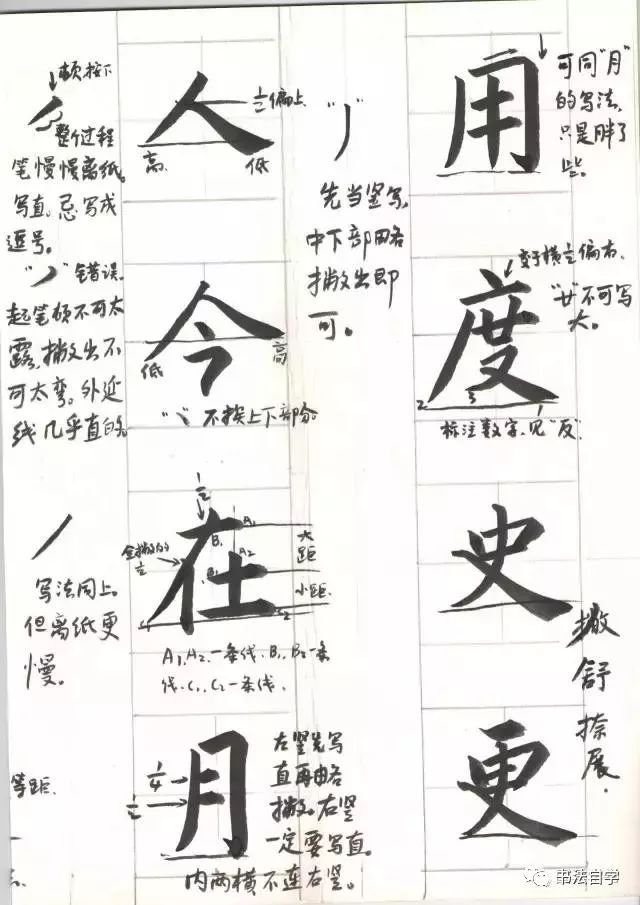 顿按下
整个过程
笔慢慢离纸。
写直,忌写成
逗号。
"丿"错误。
起笔顿不可太
露,撇出不
可太弯。外延
线几乎直的。
写法同上。
但离纸更
慢。
等距.
人
1/2偏上
高.
低
今
低
高
"丶"不挨上下部分。
在
1/2
全撇的
1/2
B1
A1
A2
B2
大
距
小距.
1
C2
A1、A2、一条线、B1、B2一条
线、C1、C2一条线、
月
1/4
1/2
左竖先写
直再略
撇。右竖
一定要写直。
内两横不连右竖。
"丿"
先当竖写,
中下部略
撇出即
可。
用
可同"月"
的写法,
只是胖了
些。
度
变于横1/2偏右.
"廿"不可写
大。
2
3
1
标注数字,见"反".
史
更
撇
舒
捺
展.
书法自学